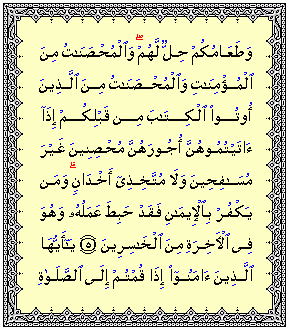 وَطَعَامُكُمْ حِلٌّ لَّهُمْ ۖ وَٱلْمُحْصَنَـٰتُ مِنَ
ٱلْمُؤْمِنَـٰتِ وَٱلْمُحْصَنَـٰتُ مِنَ ٱلَّذِينَ
أُوتُوا۟ ٱلْكِتَـٰبَ مِن قَبْلِكُمْ إِذَآ
ءَاتَيْتُمُوهُنَّ أُجُورَهُنَّ مُحْصِنِينَ غَيْرَ
مُسَـٰفِحِينَ وَلَا مُتَّخِذِىٓ أَخْدَانٍ ۗ وَمَن
يَكْفُرْ بِٱلْإِيمَـٰنِ فَقَدْ حَبِطَ عَمَلُهُۥ وَهُوَ
فِى ٱلْـَٔاخِرَةِ مِنَ ٱلْخَـٰسِرِينَ ۝٥ يَـٰٓأَيُّهَا
ٱلَّذِينَ ءَامَنُوٓا۟ إِذَا قُمْتُمْ إِلَى ٱلصَّلَوٰةِ